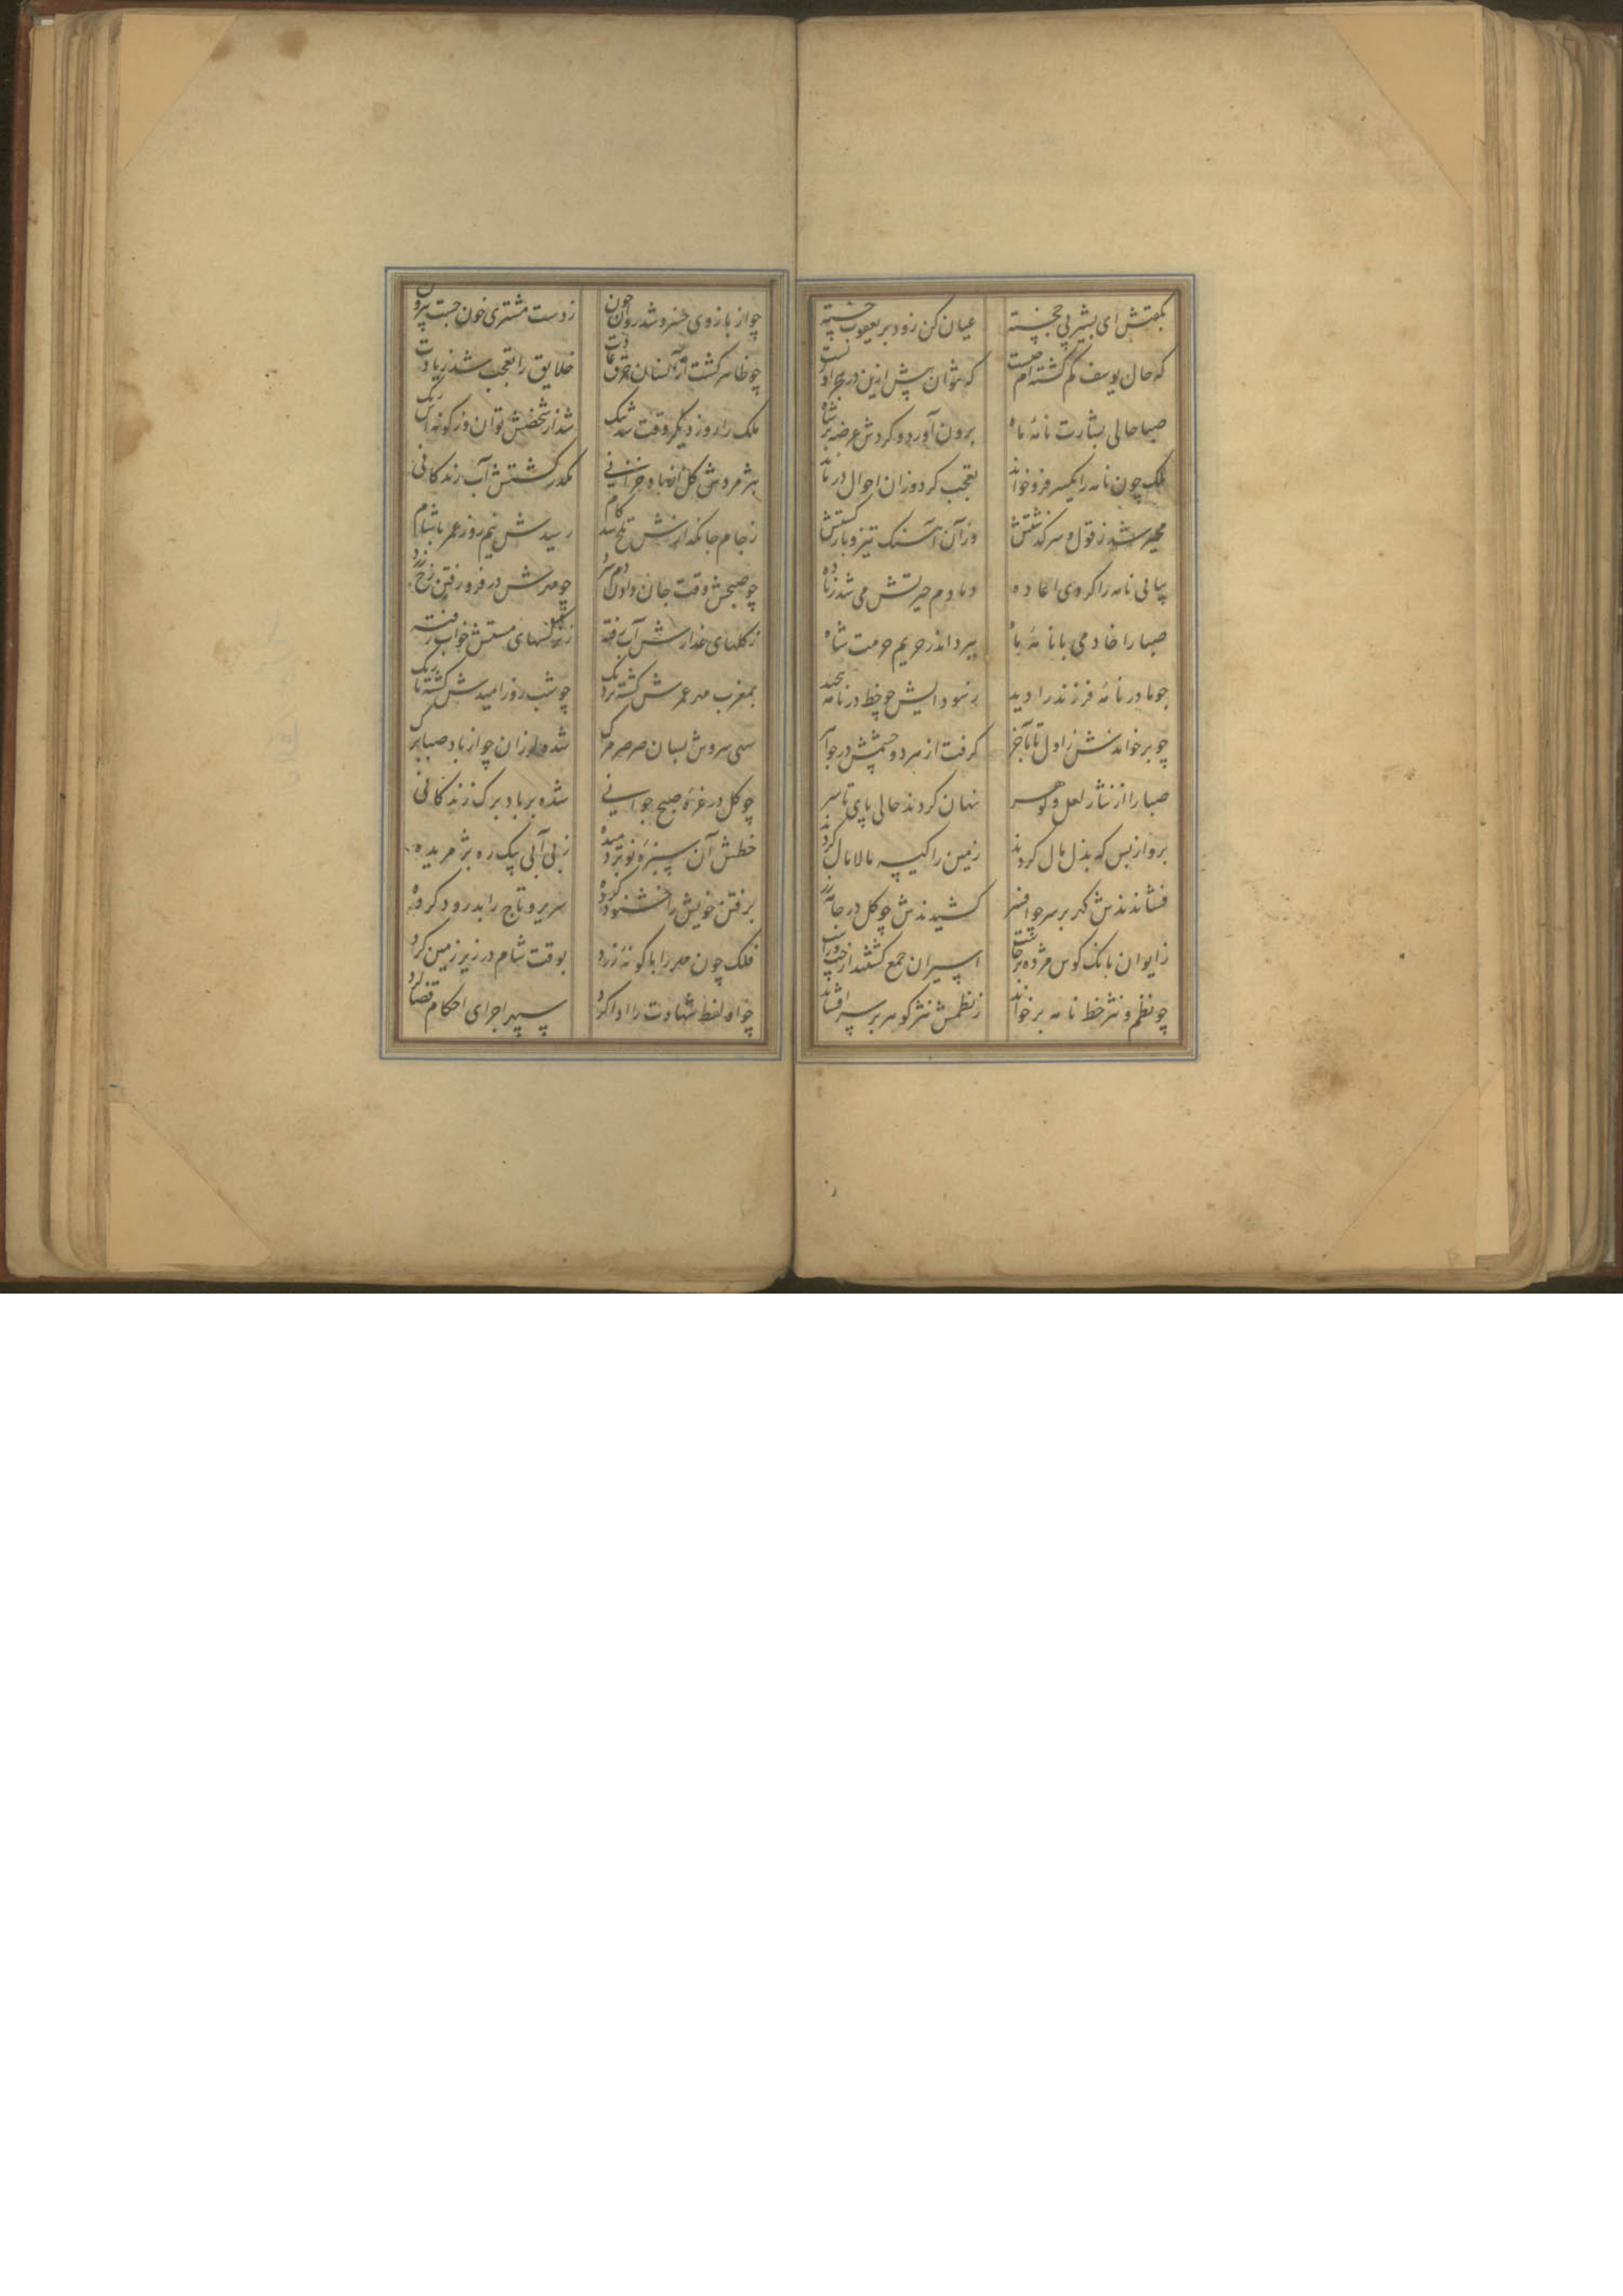 بگفتش ای بشیر پی خجسته عیان کن زود بر یعقوب خسته
که حال یوسف گم گشته‌ام چیست که نتوان پیش ازین در هجر او زیست
صبا حالی بشارت نامهٔ ماه برون آورد و کردش عرضه بر شاه
ملک چون نامه را یکسر فرو خواند تعجب کرد وزان احوال در ماند
محیر شد ز قول و سرگذشتش وزآن آهنگ تیز و بازگشتش
پیاپی نامه را کردی اعاده دمادم حیرتش می شد زیاده
صبا را خادمی با نامهٔ ماه ببرد اندر حریم حرمت شاه
چو مادر نامهٔ فرزند را دید ز سودایش چو خط در نامه پیچید
چو بر خواندش ز اول تا بآخر گرفت از هر دو چشمش در جواهر
صبا را از نثار لعل و گوهر نهان کردند حالی پای تا سر
برو از بس که بذل مال کردند زمین را کیسه مالامال کردند
فشاندندش گهر بر سر چو افسر کشیدندش چو گل در جامهٔ زر
ز ایوان بانگ کوس مژده برخاست اسیران جمع گشتند از چپ و راست
چو نظم و نثر خط نامه بر خواند ز نظمش نثر گوهر بر سر افشاند
چو از بازوی خسرو شد روان خون ز دست مشتری خون جست بیرون
چو ظاهر گشت ازآنسان خرق عادت خلایق را تعجب شد زیادت
ملک را روز دیگر وقت شد تنگ شد از شخصش توان وز گونه‌اش رنگ
بپژمردش گل از باد خزانی مکدر گشتش آب زندگانی
ز جام جانگدازش تلخ شد کام رسیدش نیم روز عمر با شام
چو صبحش وقت جان دادن دم سرد چو مهرش در فرو رفتن رخ زرد
ز گلهای عذارش آب رفته ز نرگسهای مستش خواب رفته
بمغرب مهر عمرش گشته نزدیک چو شب روز امیدش گشته تاریک
سهی سروش بسان صرصر مرگ شده لرزان چو از باد صبا برگ
چو گل در غرهٔ صبح جوانی شده بر باد برگ زندگانی
خطش آن سبزهٔ نو بردمیده ز بی آبی پیک ره پژمریده
برفتن خویش را خشنود کرده سریر و تاج را بدرود کرده
فلک چون مهر را با گونهٔ زرد بوقت شام در زیر زمین کرد
چو او لفظ شهادت را ادا کرد سپهر اجرای احکام قضا کرد